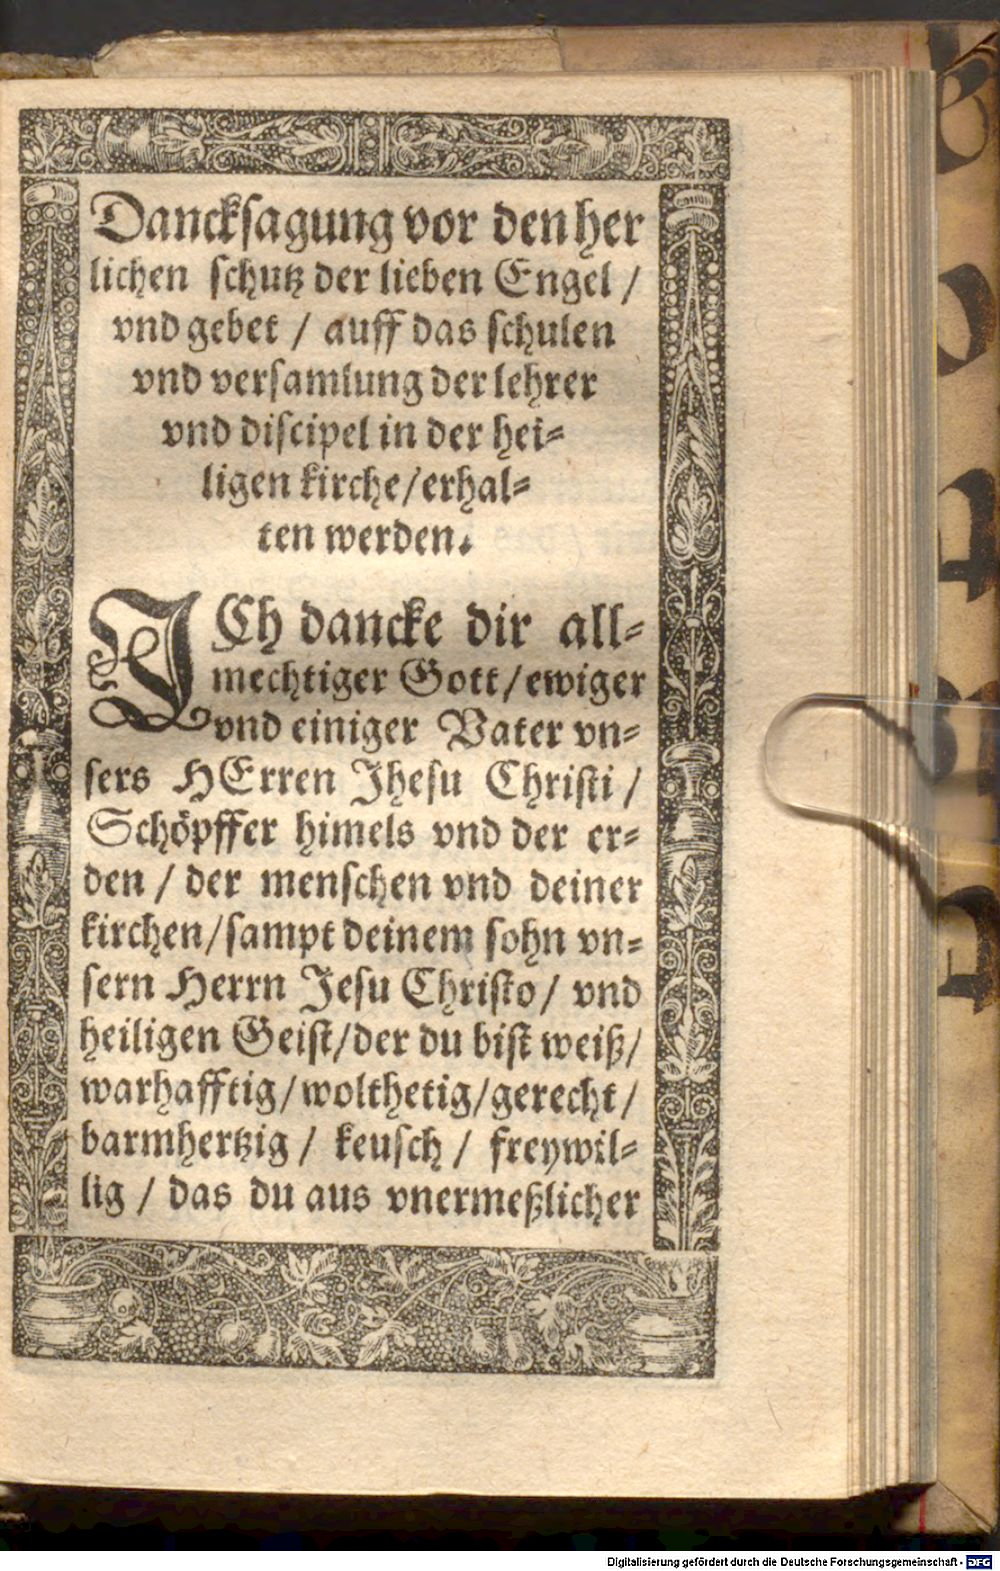 Danckſagung vor den her
lichen ſchutz der lieben Engel /
vnd gebet / auff das ſchulen
vnd verſamlung der lehrer
vnd diſcipel in der hei-
ligen kirche/erhal-
ten werden.
ICh dancke dir all-
mechtiger Gott/ewiger
vnd einiger Vater vn-
ſers HErren Jheſu Chriſti /
Schöpffer himels vnd der er-
den / der menſchen vnd deiner
kirchen/ſampt deinem ſohn vn-
ſern Herrn Jeſu Chriſto/ vnd
heiligen Geiſt/der du biſt weiß/
warhafftig/wolthetig/gerecht/
barmhertzig / keuſch / freywil-
lig / das du aus vnermeßlicher
Digitalisierung gefördert durch die Deutsche Forschungsgemeinschaft - DFG